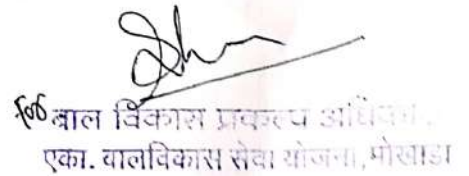 for बाल विकास प्रकल्प अधिका
एका. बालविकास सेवा योजना, मोखाडा